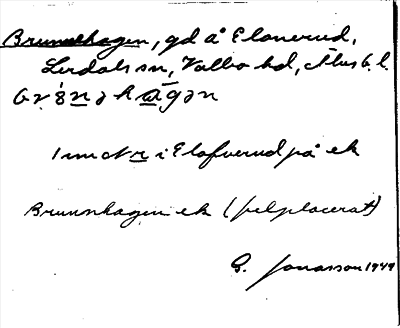 Brunnehagen, gd å Elonerud,
Lerdals sn, Valbo hd, Älvsb. l.
1 mm N r i Elofverud på ek
Brunnshagen ek (felplacerat)
G. Jonasson 1949